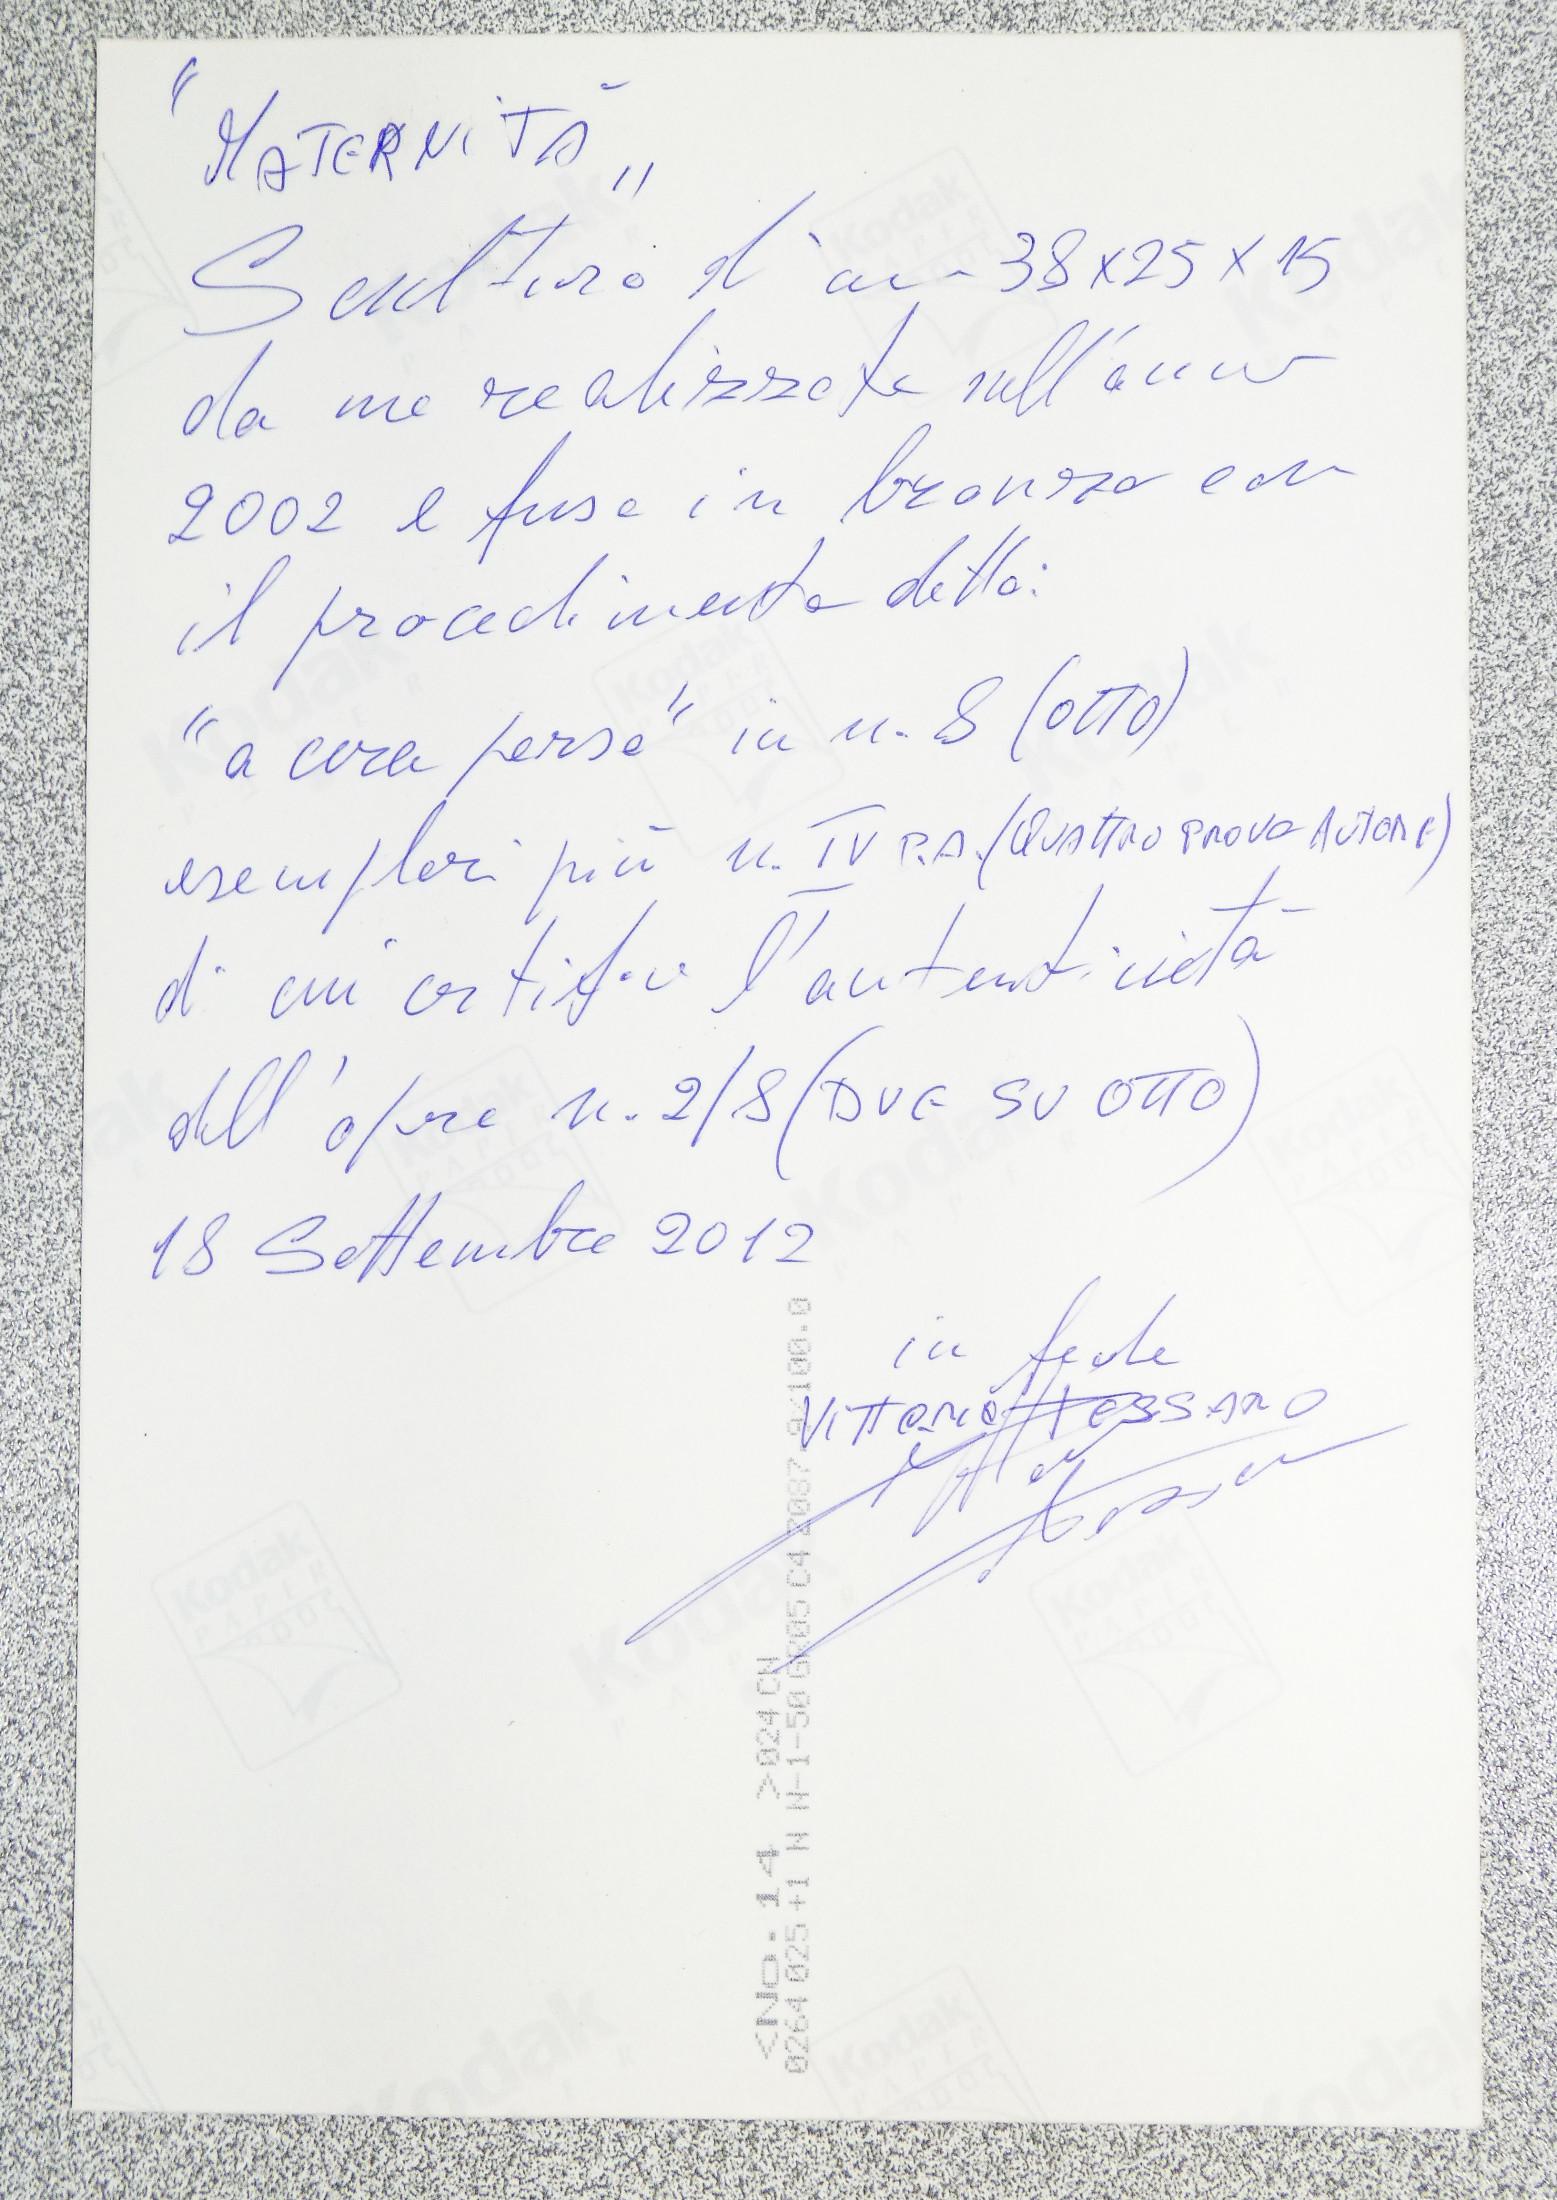 "MATERNITÀ"
Scultura di cm 38x25x15
da me realizzata nell'anno
2002 e fusa in bronzo con
il procedimento detto:
"a cera persa" in n. 8 (OTTO)
esemplari più n. IV P.A. (QUATTRO PROVA AUTORE)
di cui certifico l'autenticità
dell'opera n. 2/8 (DUE SU OTTO)
18 Settembre 2012
in fede
VITTORIO TESSARO
<No. 14 >024 CN
Kodak
PAPER